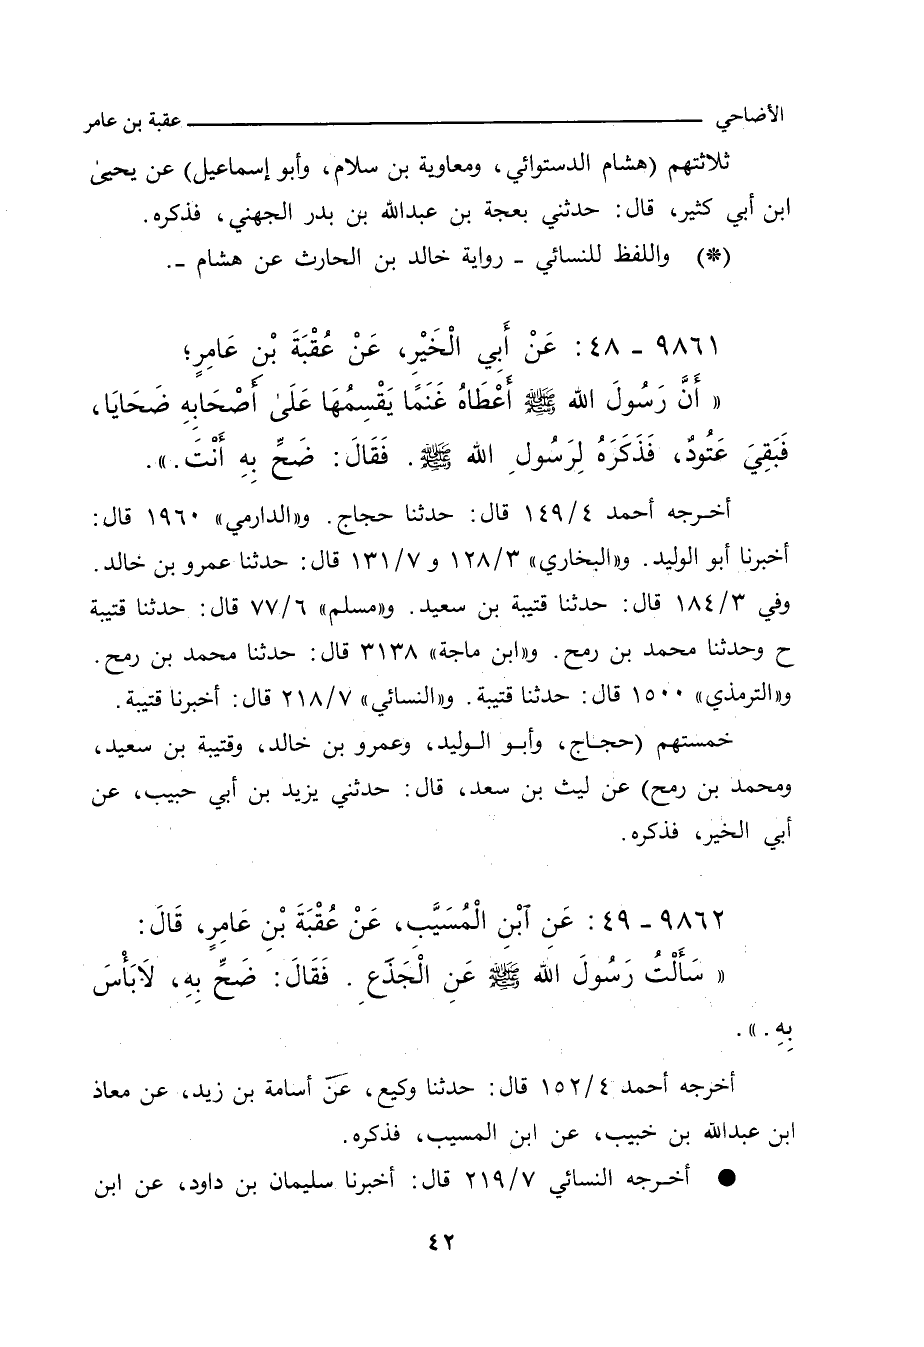 الأضاحي ــــــــــــــــــــ عقبة بن عامر
ثلاثتهم (هشام الدستوائي، ومعاوية بن سلام، وأبو إسماعيل) عن يحيىٰ
ابن أبي كثير، قال: حدثني بعجة بن عبدالله بن بدر الجهني، فذكره.
(*) واللفظ للنسائي - رواية خالد بن الحارث عن هشام -.
٩٨٦١ - ٤٨: عَنْ أَبِي الْخَيْرِ، عَنْ عُقْبَةَ بْنِ عَامِرٍ؛
« أَنَّ رَسُولَ الله ﷺ أَعْطَاهُ غَنَمًا يَقْسِمُهَا عَلَىٰ أَصْحَابِهِ ضَحَايَا،
فَبَقِيَ عَتُودٌ، فَذَكَرَهُ لِرَسُولِ الله ﷺ. فَقَالَ: ضَحِّ بِهِ أَنْتَ.».
أخـرجه أحمد ١٤٩/٤ قال: حدثنا حجاج. و«الدارمي» ١٩٦٠ قال:
أخبرنا أبو الوليد. و«البخاري» ١٢٨/٣ و ١٣١/٧ قال: حدثنا عمرو بن خالد.
وفي ١٨٤/٣ قال: حدثنا قتيبة بن سعيد. و«مسلم» ٧٧/٦ قال: حدثنا قتيبة
ح وحدثنا محمد بن رمح. و«ابن ماجة» ٣١٣٨ قال: حدثنا محمد بن رمح.
و«الترمذي» ١٥٠٠ قال: حدثنا قتيبة. و«النسائي» ٢١٨/٧ قال: أخبرنا قتيبة.
خمستهم (حجـاج، وأبـو الـوليد، وعمرو بن خالد، وقتيبة بن سعيد،
ومحمد بن رمح) عن ليث بن سعد، قال: حدثني يزيد بن أبي حبيب، عن
أبي الخير، فذكره.
٩٨٦٢ - ٤٩: عَنِ آبْنِ الْمُسَيَّبِ، عَنْ عُقْبَةَ بْنِ عَامِرٍ، قَالَ:
« سَأَلْتُ رَسُولَ الله ﷺ عَنِ الْجَذَعِ. فَقَالَ: ضَحِّ بِهِ، لَا بَأْسَ
بِهِ.».
أخرجه أحمد ١٥٢/٤ قال: حدثنا وكيع، عن أسامة بن زيد، عن معاذ
ابن عبدالله بن خبيب، عن ابن المسيب، فذكره.
● أخـرجه النسائي ٢١٩/٧ قال: أخبرنا سليمان بن داود، عن ابن
٤٢